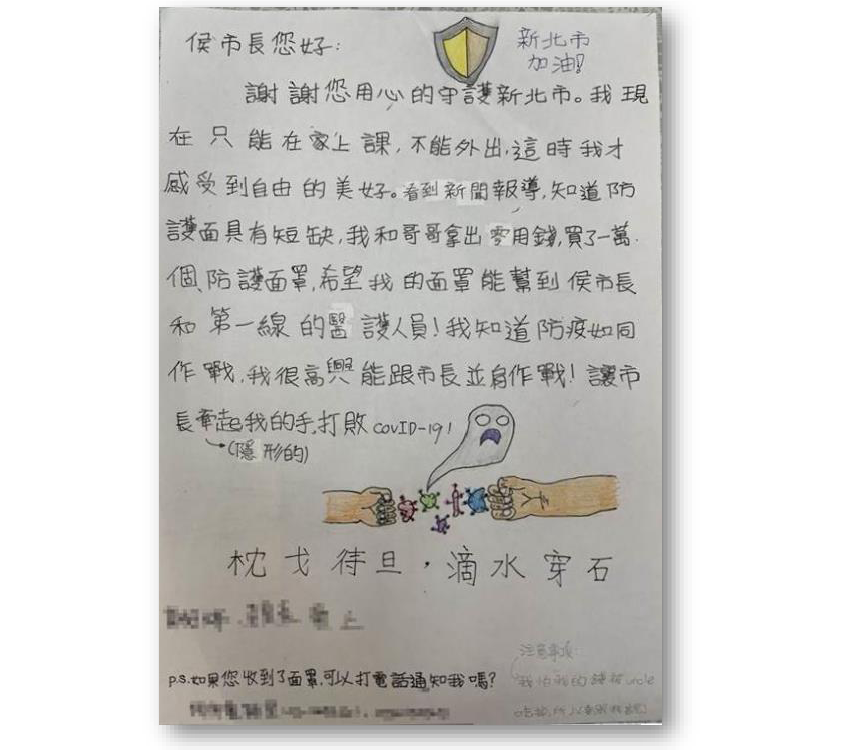 侯市長您好:
新北市
加油!
謝謝您用心的守護新北市。我現
在只能在家上課,不能外出,這時我才
感受到自由的美好。看到新聞報導,知道防
護面具有短缺,我和哥哥拿出零用錢,買了一萬
個防護面罩,希望我的面罩能幫到侯市長
和第一線的醫護人員!我知道防疫如同
作戰,我很高興能跟市長並肩作戰!讓市
長牽起我的手,打敗COVID-19!
(隱形的)
枕戈待旦,滴水穿石
敬上
p.s.如果您收到了面罩,可以打電話通知我嗎?
注意事項:
我怕我的錢被uncle